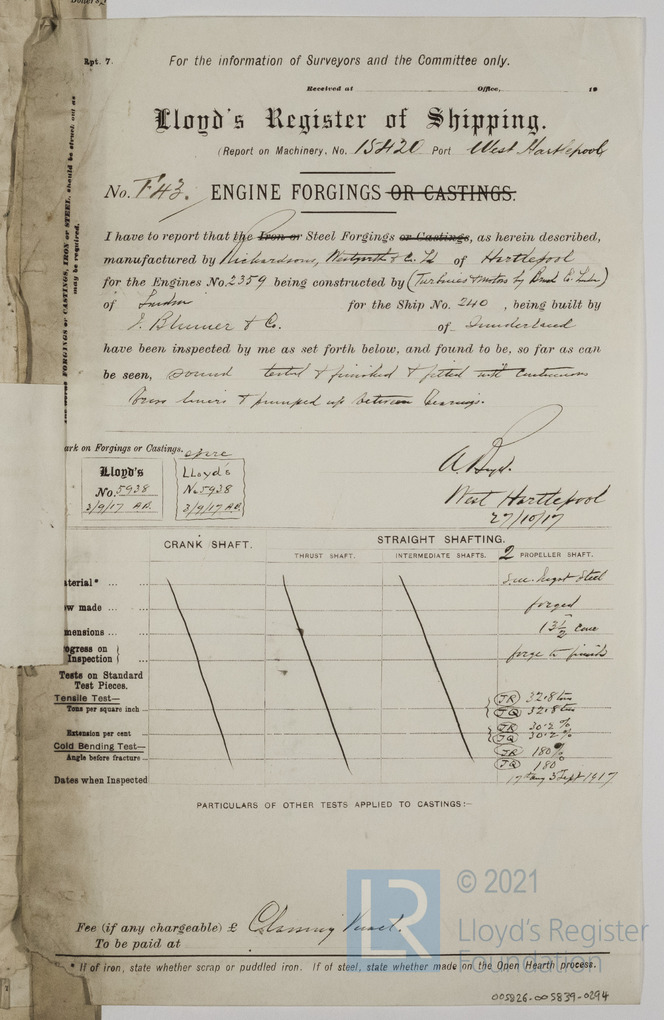 Rpt. 7.
For the information of Surveyors and the Committee only.
Received at Office, 19
Lloyd's Register of Shipping.
(Report on Machinery, No. 15420 Port West Hartlepool
No. F43. ENGINE FORGINGS OR CASTINGS.
I have to report that the Iron or Steel Forgings or Castings, as herein described,
manufactured by Richardsons, Westgarth & Co. Ld of Hartlepool
for the Engines No. 2359 being constructed by (Turbines & motors by
of London for the Ship No. 240, being built by
J. Blumer & Co. of Sunderland
have been inspected by me as set forth below, and found to be, so far as can
be seen, sound tested & finished & fitted with continuous
brass liners & pumped up between bearings.
FORGINGS or CASTINGS, IRON or STEEL, should be struck out as
may be required.
ark on Forgings or Castings. spare
Lloyd's
No. 5938
3/9/17 A.B.
LLoyd's
No 5938
3/9/17 A.B.
West Hartlepool
27/10/17
CRANK SHAFT.
STRAIGHT SHAFTING.
THRUST SHAFT. INTERMEDIATE SHAFTS. 2 PROPELLER SHAFT.
aterial* ... ... Ingot Steel
ow made ... ... forged
mensions ... ... 13½ cone
ogress on
Inspection forge to finish
Tests on Standard
Test Pieces.
Tensile Test—
Tons per square inch ... JR 32.8 tons
JQ 32.8 tons
Extension per cent ... JR 30.2 %
JQ 30.2 %
Cold Bending Test—
Angle before fracture ... JR 180°
JQ 180°
Dates when Inspected 17th Aug 3 Sept 1917
PARTICULARS OF OTHER TESTS APPLIED TO CASTINGS:—
Fee (if any chargeable) £ Classing Vessel.
To be paid at
* If of iron, state whether scrap or puddled iron. If of steel, state whether made on the Open Hearth process.
LR
© 2021
Lloyd's Register
Foundation
005826-005839-0294